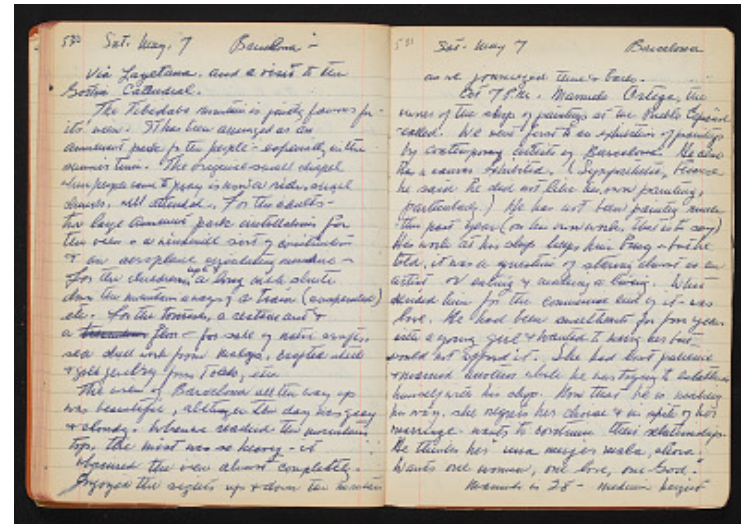 530 Sat. May, 7 Barcelona -
Via Layetana. and a visit to the
Gothic Cathedral.
The Tibidabo mountain is justly famous for
its view. It has been arranged as an
amusement park for the people - especially in the
summer time. The original small chapel
where people came to pray is now a wider, small
church, well attended. For the adults -
the large amusement park installations for
the view - a windmill sort of construction
& an aeroplane machine -
for the children, a long slide
down the mountain a train (suspended)
etc. For the tourists, a restaurant &
a floor - for sale of native crafts,
sea shell work from Malaga, crafted steel
& gold jewelry from Toledo, etc.
The view of Barcelona all the way up
was beautiful, although the day was gray
& cloudy. When we reached the mountain
top, the mist was so heavy - it
obscured the view almost completely.
Enjoyed the sights up & down the mountain
531 Sat - May 7 Barcelona
as we journeyed there & back.
At 7 P.M. Manuel Ortega, the
owner of the shop of paintings at the Pueblo Español
called. We went first to an exhibition of paintings
by contemporary artists of Barcelona. He also
has a canvas exhibited. (Sympathetic, because
he said he did not like his own painting,
particularly.) He has not been painting much
this past year (on his own work, that is to say)
His work at his shop keeps him busy - but he
told, it was a question of starving almost as an
artist - or eating & making a living. What
decided him for the commercial end of it - was
love. He had been sweethearts for four years
with a young girl & wanted to marry her but
could not afford it. She had lost patience
& married another while he was trying to establish
himself with his shop. Now that he is making
his way, she regrets her choice & in spite of her
marriage - wants to continue their relationship.
He thinks her
Wants one woman, one love, one God."
Manuel is 28 - medium height